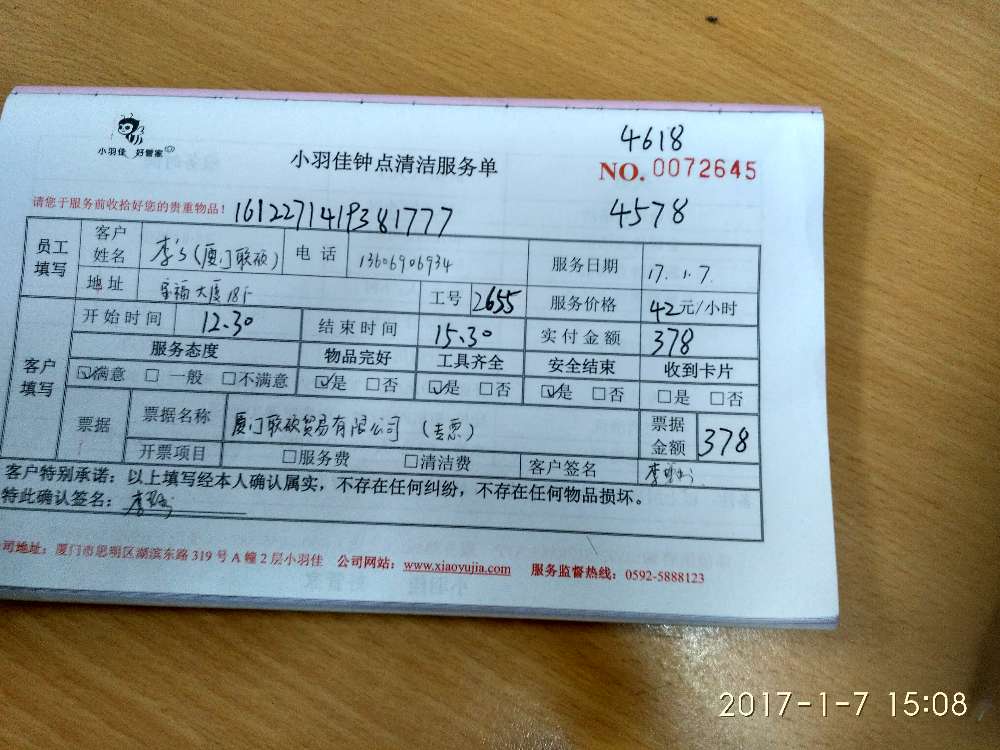 小羽佳 好管家
4618
小羽佳钟点清洁服务单
NO. 0072645
请您于服务前收拾好您的贵重物品! 1612271419381777
4578
员工填写 客户姓名 (厦门联硕) 电话 13606906934 服务日期 17.1.7.
地址 大厦18F 工号 2655 服务价格 42元/小时
客户填写 开始时间 12.30 结束时间 15.30 实付金额 378
服务态度 物品完好 工具齐全 安全结束 收到卡片
☑满意 □一般 □不满意 ☑是 □否 ☑是 □否 ☑是 □否 □是 □否
票据 票据名称 厦门联硕贸易有限公司 (专票) 票据金额 378
开票项目 □服务费 □清洁费 客户签名
客户特别承诺:以上填写经本人确认属实,不存在任何纠纷,不存在任何物品损坏。
特此确认签名:
司地址:厦门市思明区湖滨东路319号A幢2层小羽佳 公司网站:www.xiaoyujia.com 服务监督热线:0592-5888123
2017-1-7 15:08